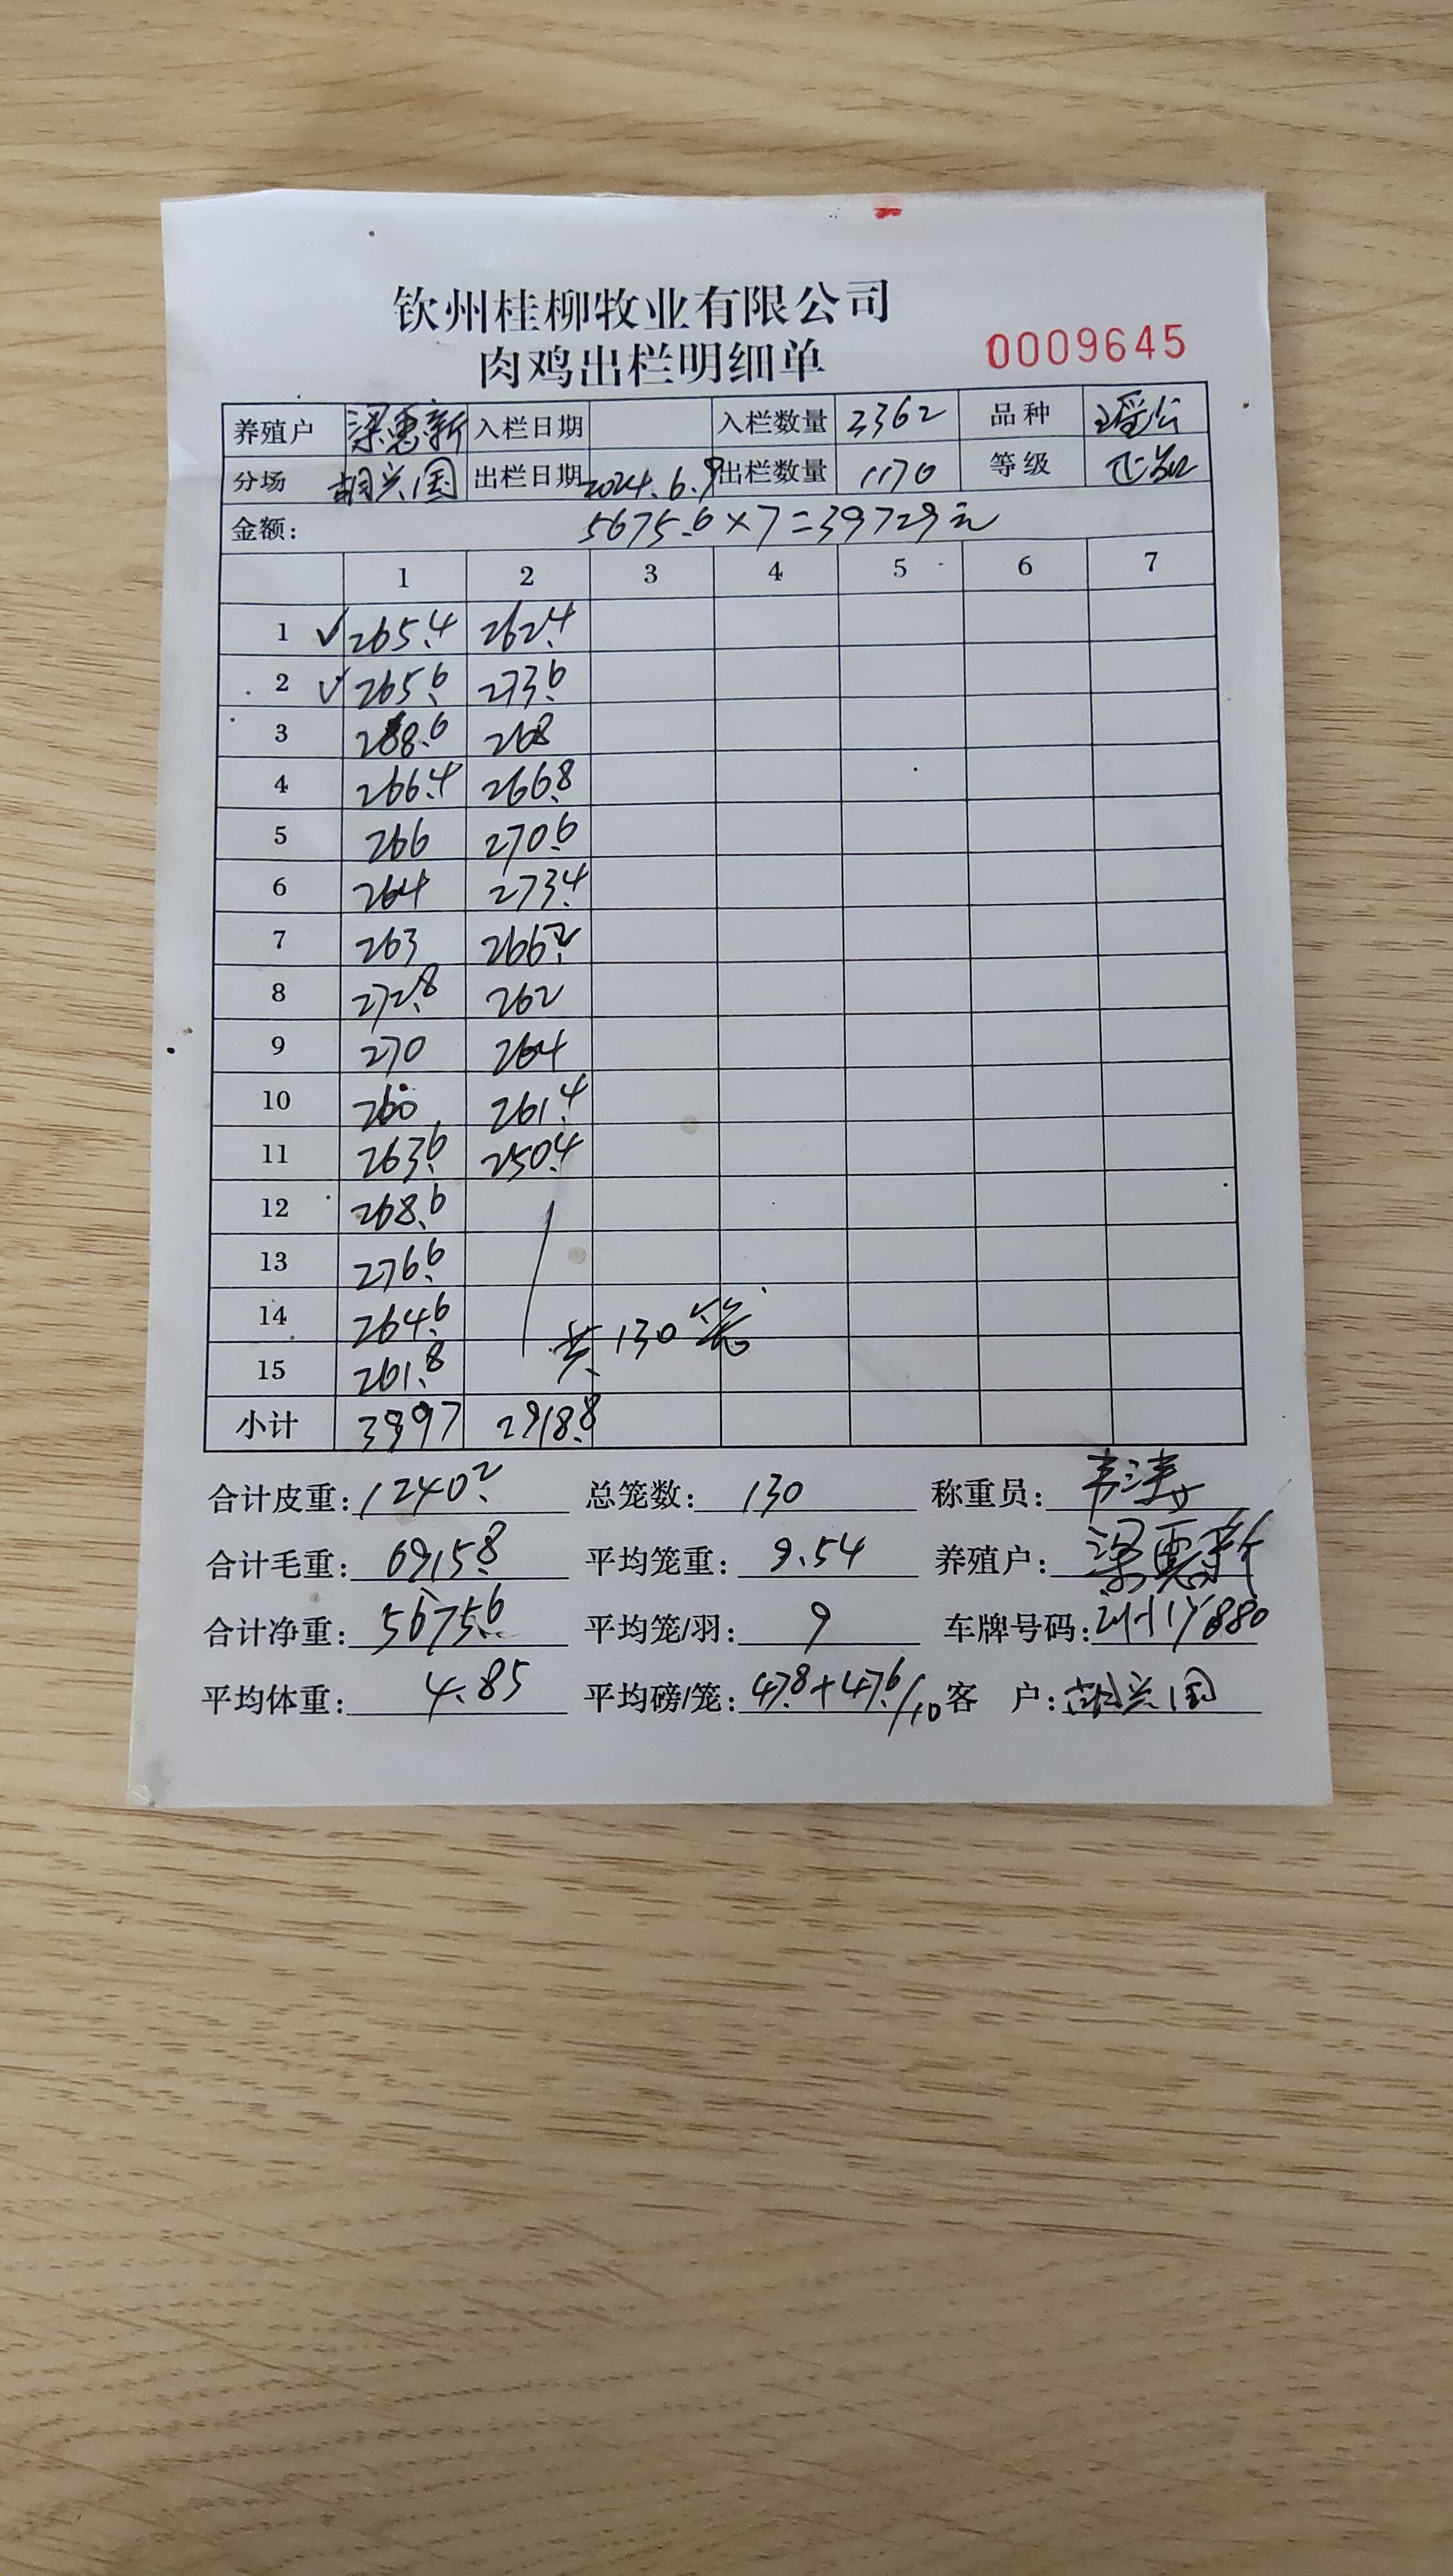 钦州桂柳牧业有限公司
肉鸡出栏明细单 0009645
养殖户 梁惠新 入栏日期 入栏数量 3362 品种 瑶公
分场 胡兴国 出栏日期 2024.6.9 出栏数量 1170 等级 正级
金额: 5675.6×7=39729元
1 2 3 4 5 6 7
1 ✓ 265.4 262.4
2 ✓ 265.6 273.6
3 268.6 268
4 266.4 266.8
5 266 270.6
6 264 273.4
7 263 266.2
8 272.8 262
9 270 264
10 260 261.4
11 263.6 250.4
12 268.6
13 276.6
14 264.6 共130笼
15 261.8
小计 3997 2918.8
合计皮重: 1240.2 总笼数: 130 称重员:
合计毛重: 6915.8 平均笼重: 9.54 养殖户: 梁惠新
合计净重: 5675.6 平均笼/羽: 9 车牌号码:
平均体重: 4.85 平均磅/笼: 47.8+47.6/10 客 户: 胡兴国